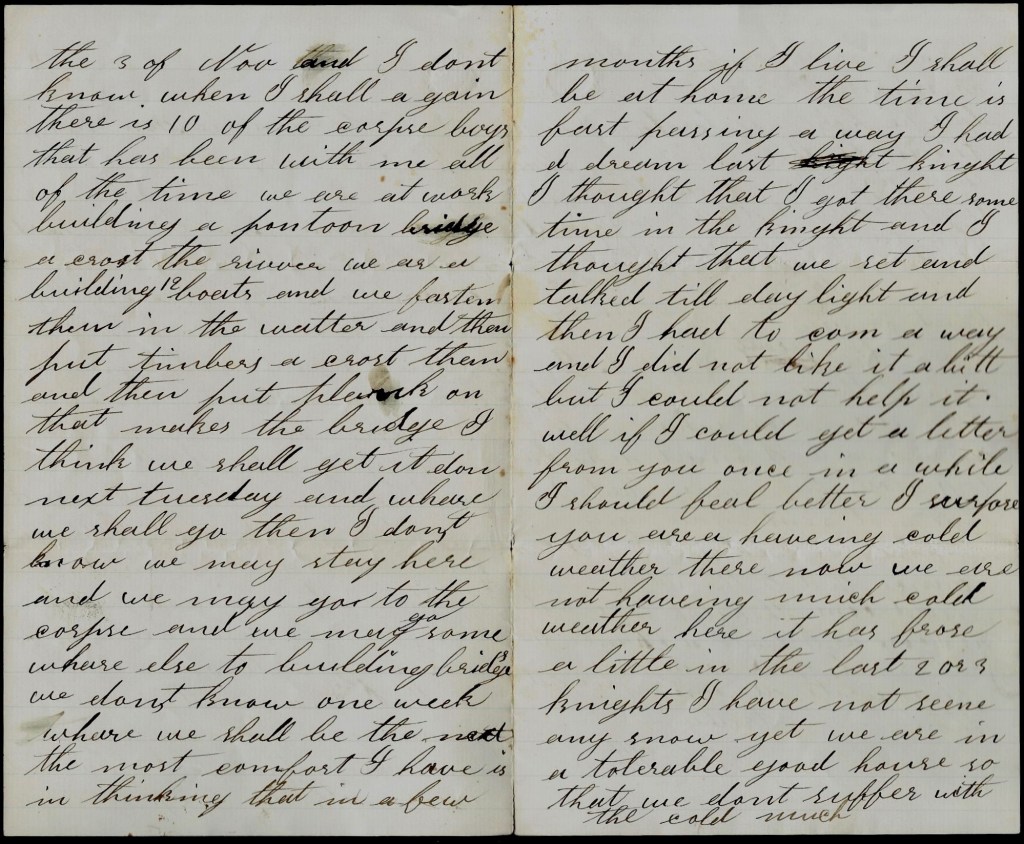 the 3 of Nov and I dont
know when I shall a gain
there is 10 of the corpse boys
that has been with me all
of the time we are at work
building a pontoon bridge
a crost the rivver we ar a
building 12 boats and we fasten
them in the watter and then
put timbers a crost them
and then put plank on
that makes the bridge I
think we shall get it don
next tuesday and whare
we shall go then I dont
know we may stay here
and we may go to the
corpse and we may go some
whare else to building bridges
we dont know one week
whare we shall be the next
the most comfort I have is
in thinking that in a few
months if I live I shall
be at home the time is
fast passing a way I had
a dream last knight
I thought that I got there some
time in the knight and I
thought that we set and
talked till day light and
then I had to com a way
and I did not like it a bitt
but I could not help it.
well if I could get a letter
from you once in a while
I should feal better I surpose
you are a haveing cold
weather there now we are
not haveing much cold
weather here it has frose
a little in the last 2 or 3
knights I have not seene
any snow yet we are in
a tolerable good house so
that we dont suffer with
the cold much